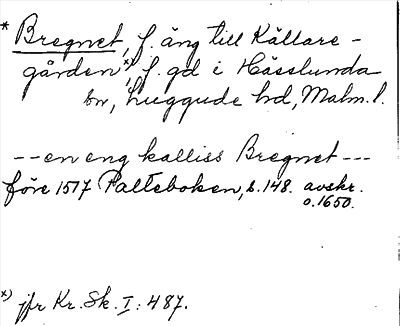 * Bregnet, f. äng till Källare-
gården *), f. gd i Hässlunda
by, Luggude hd, Malm. l.
--en eng kalliss Bregnet---
före 1517 Palteboken, s. 148. avskr.
o. 1650.
*) jfr Kr. Sk. I: 487.